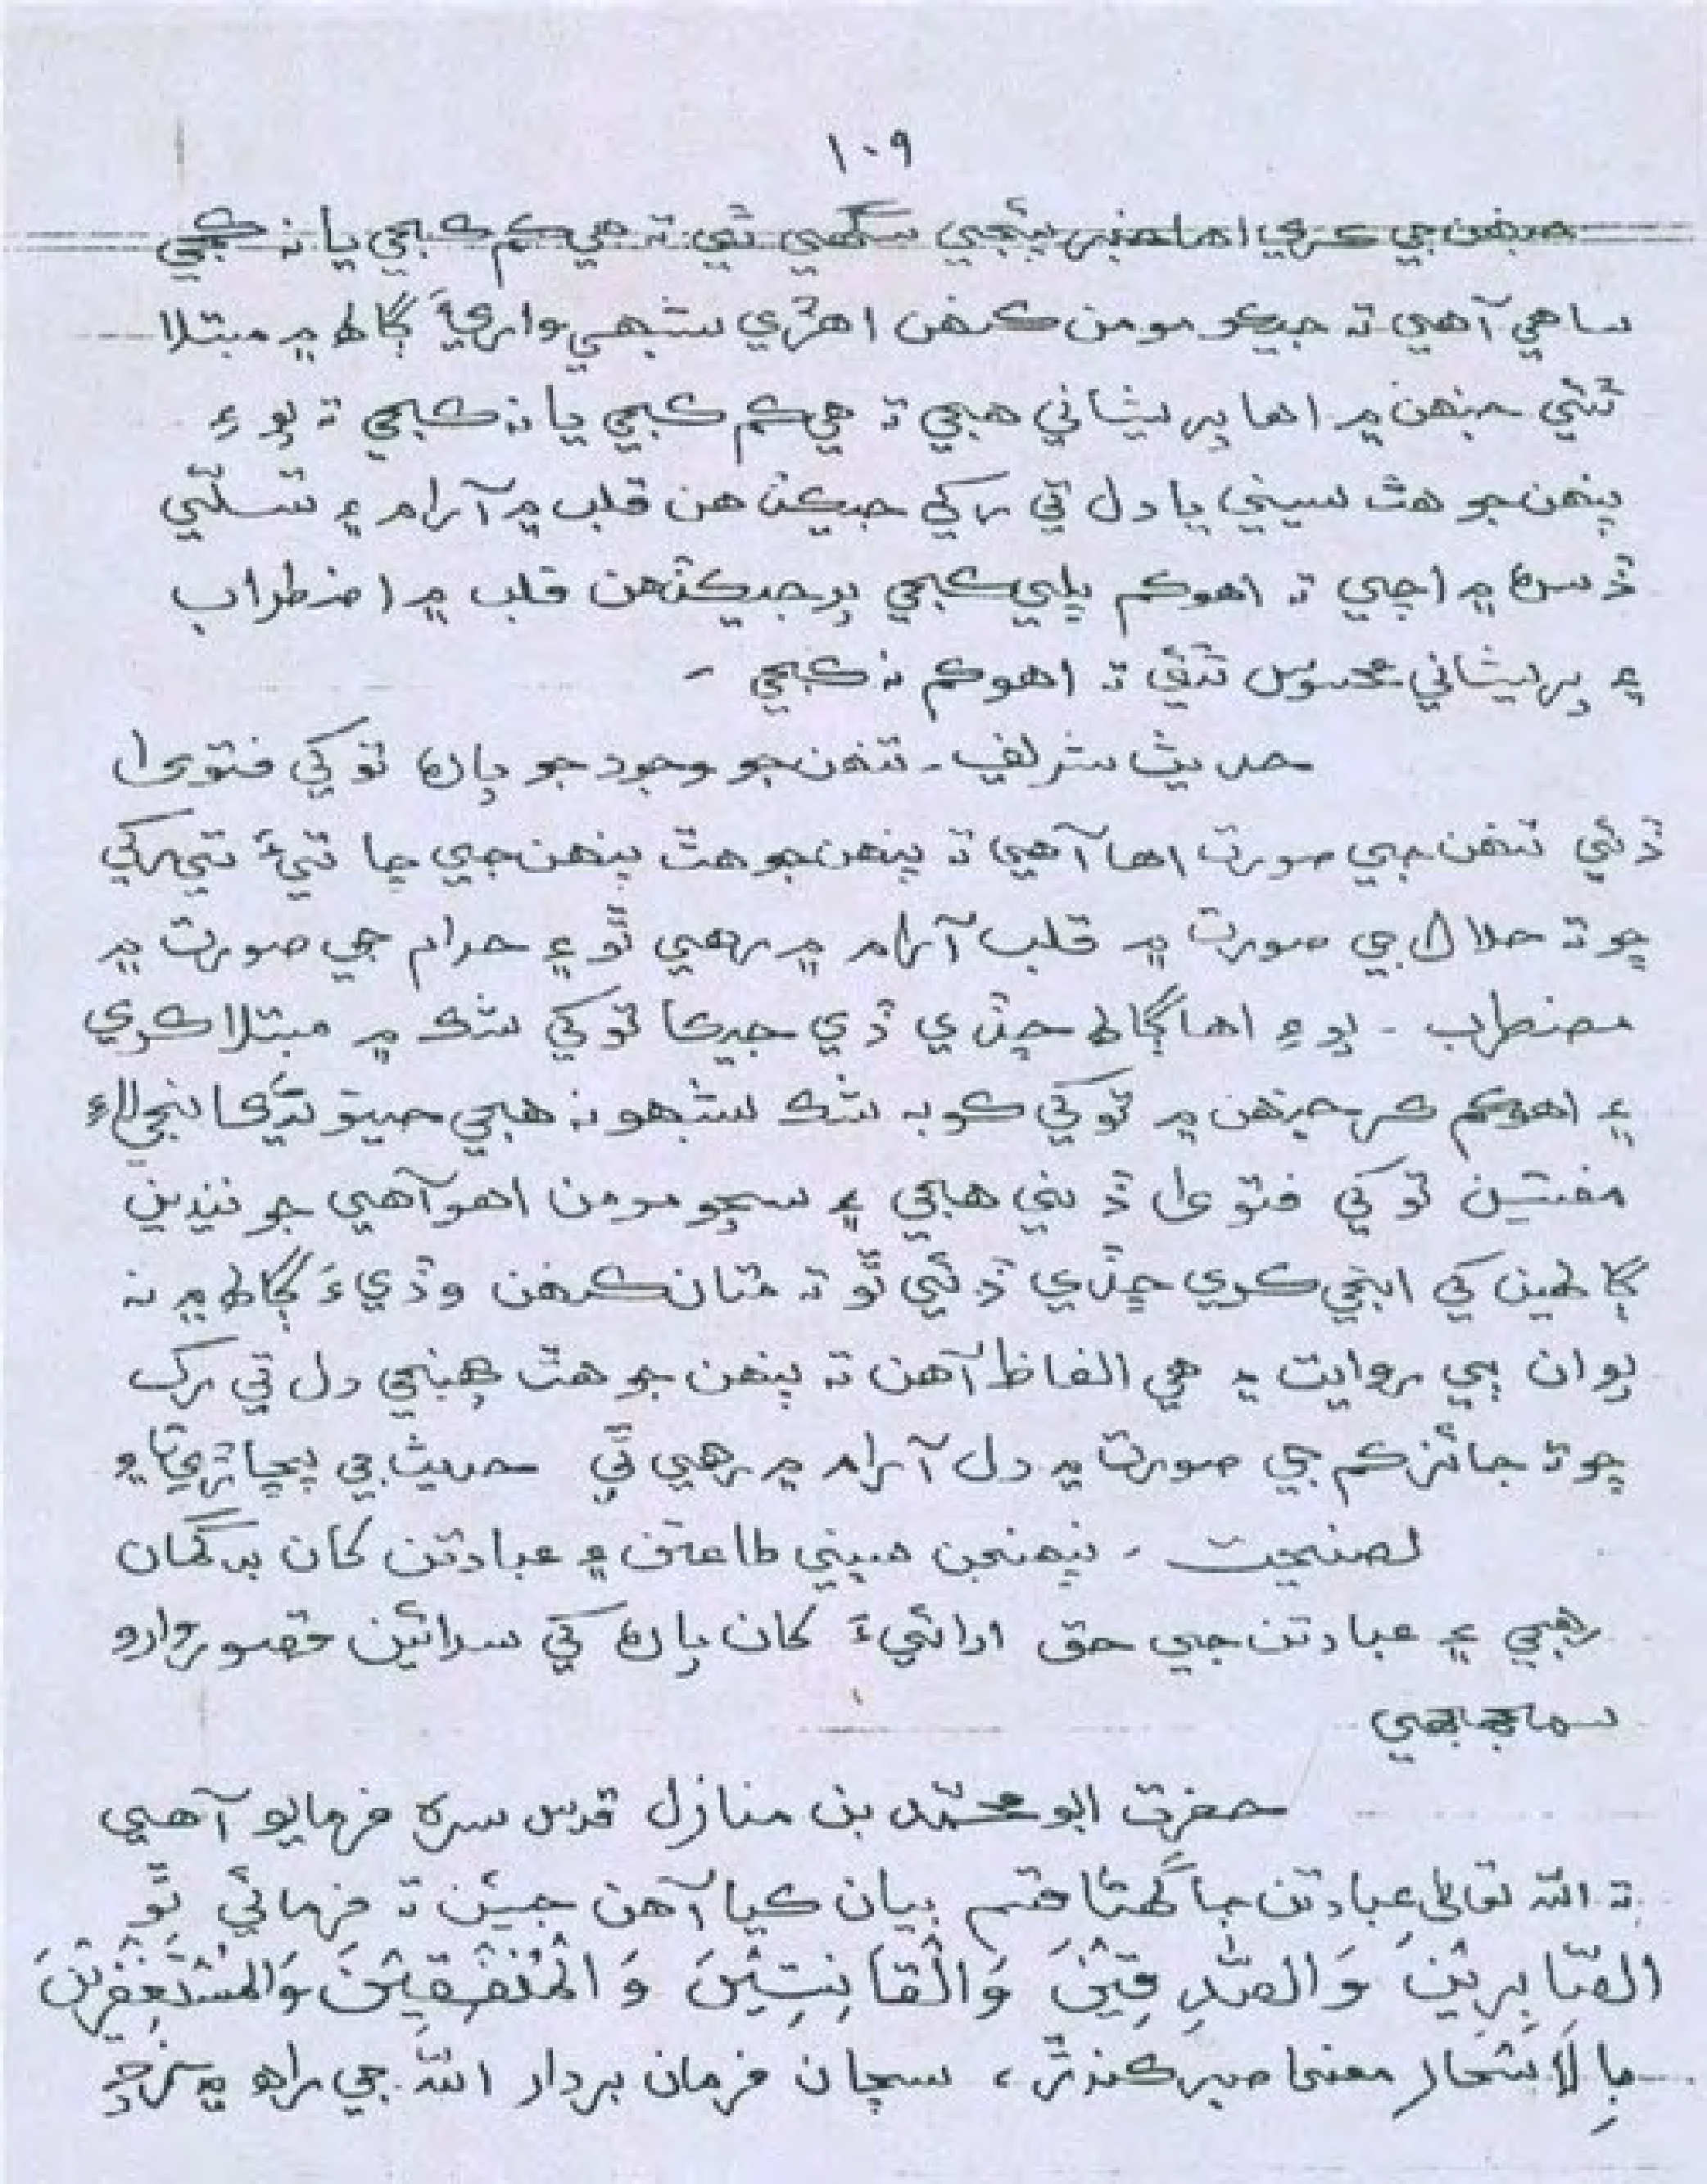 ١٠٩
جنهن جي ڪري اها خبر پئجي سگهي ٿي ته هي ڪم ڪبجي يا نه ڪبجي
ساهي آهي ته جيڪو مومن ڪنهن اهڙي شبهي واريءَ ڳالھ ۾ مبتلا
ٿئي جنهن ۾ اها پريشاني هجي ته هي ڪم ڪبجي يا نه ڪبجي ته پوءِ
پنهنجو هٿ سيني يا دل تي رکي جيڪڏهن قلب ۾ آرام ۽ تسلي
ڏسڻ ۾ اچي ته اهو ڪم ڀلي ڪبجي پر جيڪڏهن قلب ۾ اضطراب
۽ پريشاني محسوس ٿئي ته اهو ڪم نه ڪبجي ۔
حديث شريف ۔ تنهنجو وجود جو پاڻ توکي فتويٰ
ڏئي تنهن جي صورت اها آهي ته پنهنجو هٿ پنهنجي ڇاتيءَ تي رکي
ڇو ته حلال جي صورت ۾ قلب آرام ۾ رهي ٿو ۽ حرام جي صورت ۾
مضطرب ۔ پوءِ اها ڳالھ ڇڏي ڏي جيڪا توکي شڪ ۾ مبتلا ڪري
۽ اهو ڪم ڪر جنهن ۾ توکي ڪو به شڪ شبهو نه هجي
مفتين توکي فتويٰ ڏني هجي ۽ سچو مومن اهو آهي جو ننڍين
ڳالهين کي ائين ڪري ڇڏي ڏئي ٿو ته متان ڪنهن وڏيءَ ڳالھ ۾ نه
پوان ٻي روايت ۾ هي الفاظ آهن ته پنهنجو هٿ پنهنجي دل تي رک
ڇو ته جائز ڪم جي صورت ۾ دل آرام ۾ رهي ٿي حديث جي پڄاڻي ٿي ۽
نصيحت ۔ پنهنجن ميڙي طاعتن ۽ عبادتن کان بدگمان
رهجي ۽ عبادتن جي حق ادائيءَ کان پاڻ کي سدائين قصور وارو
سمجهجي
حضرت ابو محمد بن منازل قدس سره فرمايو آهي
ته الله تعاليٰ عبادتن جا گهڻا قسم بيان ڪيا آهن جيئن ته فرمائي ٿو
الصّابِرِيْنَ وَالصّٰدِقِيْنَ وَالْقَانِتِيْنَ وَالْمُنْفِقِيْنَ وَالْمُسْتَغْفِرِيْنَ
بِالْاَسْحَارِ معنيٰ صبر ڪندڙ، سچان فرمان بردار الله جي راهه ۾ خرچ